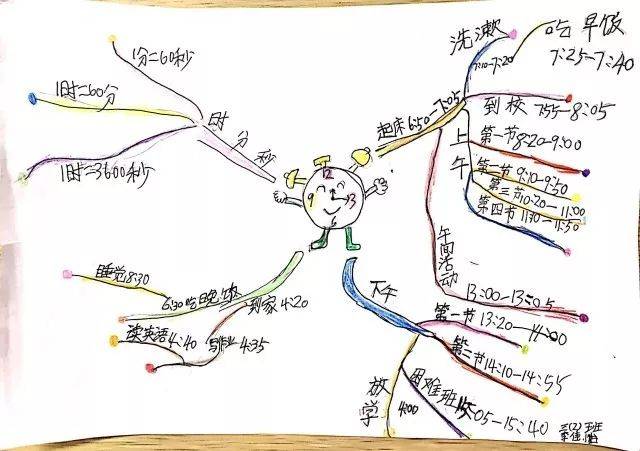 时 分 秒
1分=60秒
1时=60分
1时=3600秒
12
9
3
6
起床6:50-7:05
洗漱
7:10-7:20
吃早饭
7:25-7:40
到校 7:55-8:05
上午
第一节8:20-9:00
第二节9:10-9:50
第三节10:20-11:00
第四节11:10-11:50
午间活动
13:00-13:05
下午
第一节13:20-14:00
第二节14:10-14:55
困难班15:05-15:40
放学
4:00
到家4:20
写作业4:35
读英语4:40
6:30吃晚饭
睡觉8:30
三(2)班